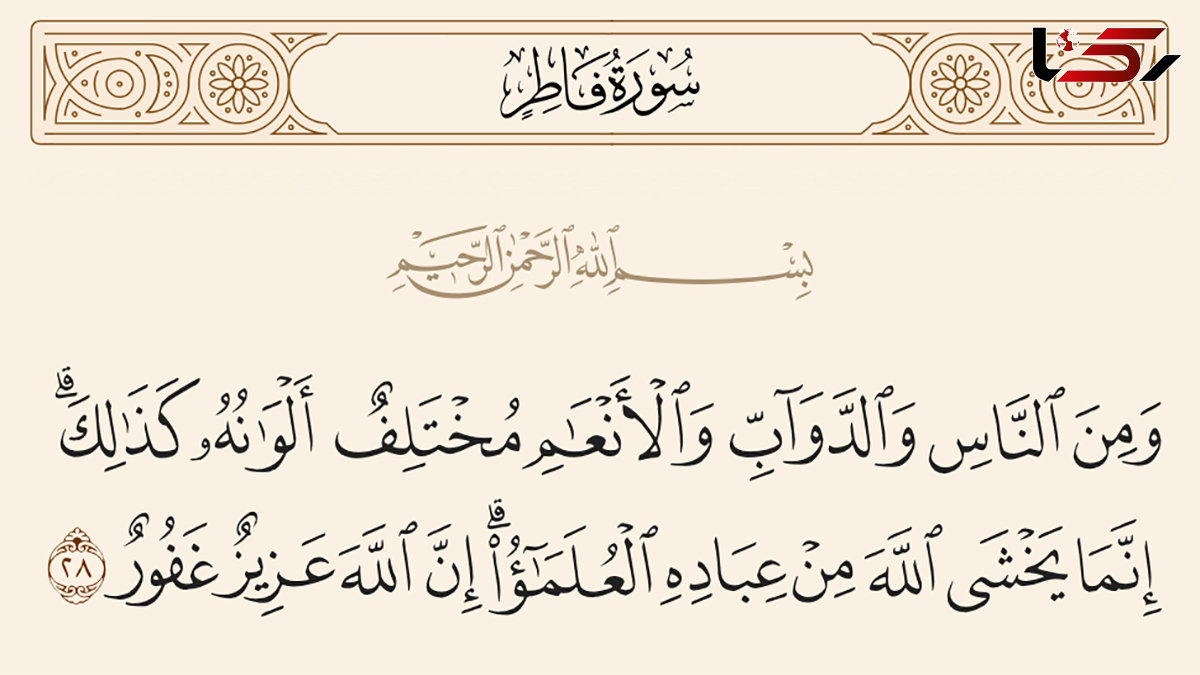 سُورَةُ فَاطِرٍ
رکنا
بِسْمِ ٱللَّهِ ٱلرَّحْمَٰنِ ٱلرَّحِيمِ
وَمِنَ ٱلنَّاسِ وَٱلدَّوَآبِّ وَٱلْأَنْعَٰمِ مُخْتَلِفٌ أَلْوَٰنُهُۥ كَذَٰلِكَۗ
إِنَّمَا يَخْشَى ٱللَّهَ مِنْ عِبَادِهِ ٱلْعُلَمَٰٓؤُا۟ۗ إِنَّ ٱللَّهَ عَزِيزٌ غَفُورٌ ٢٨